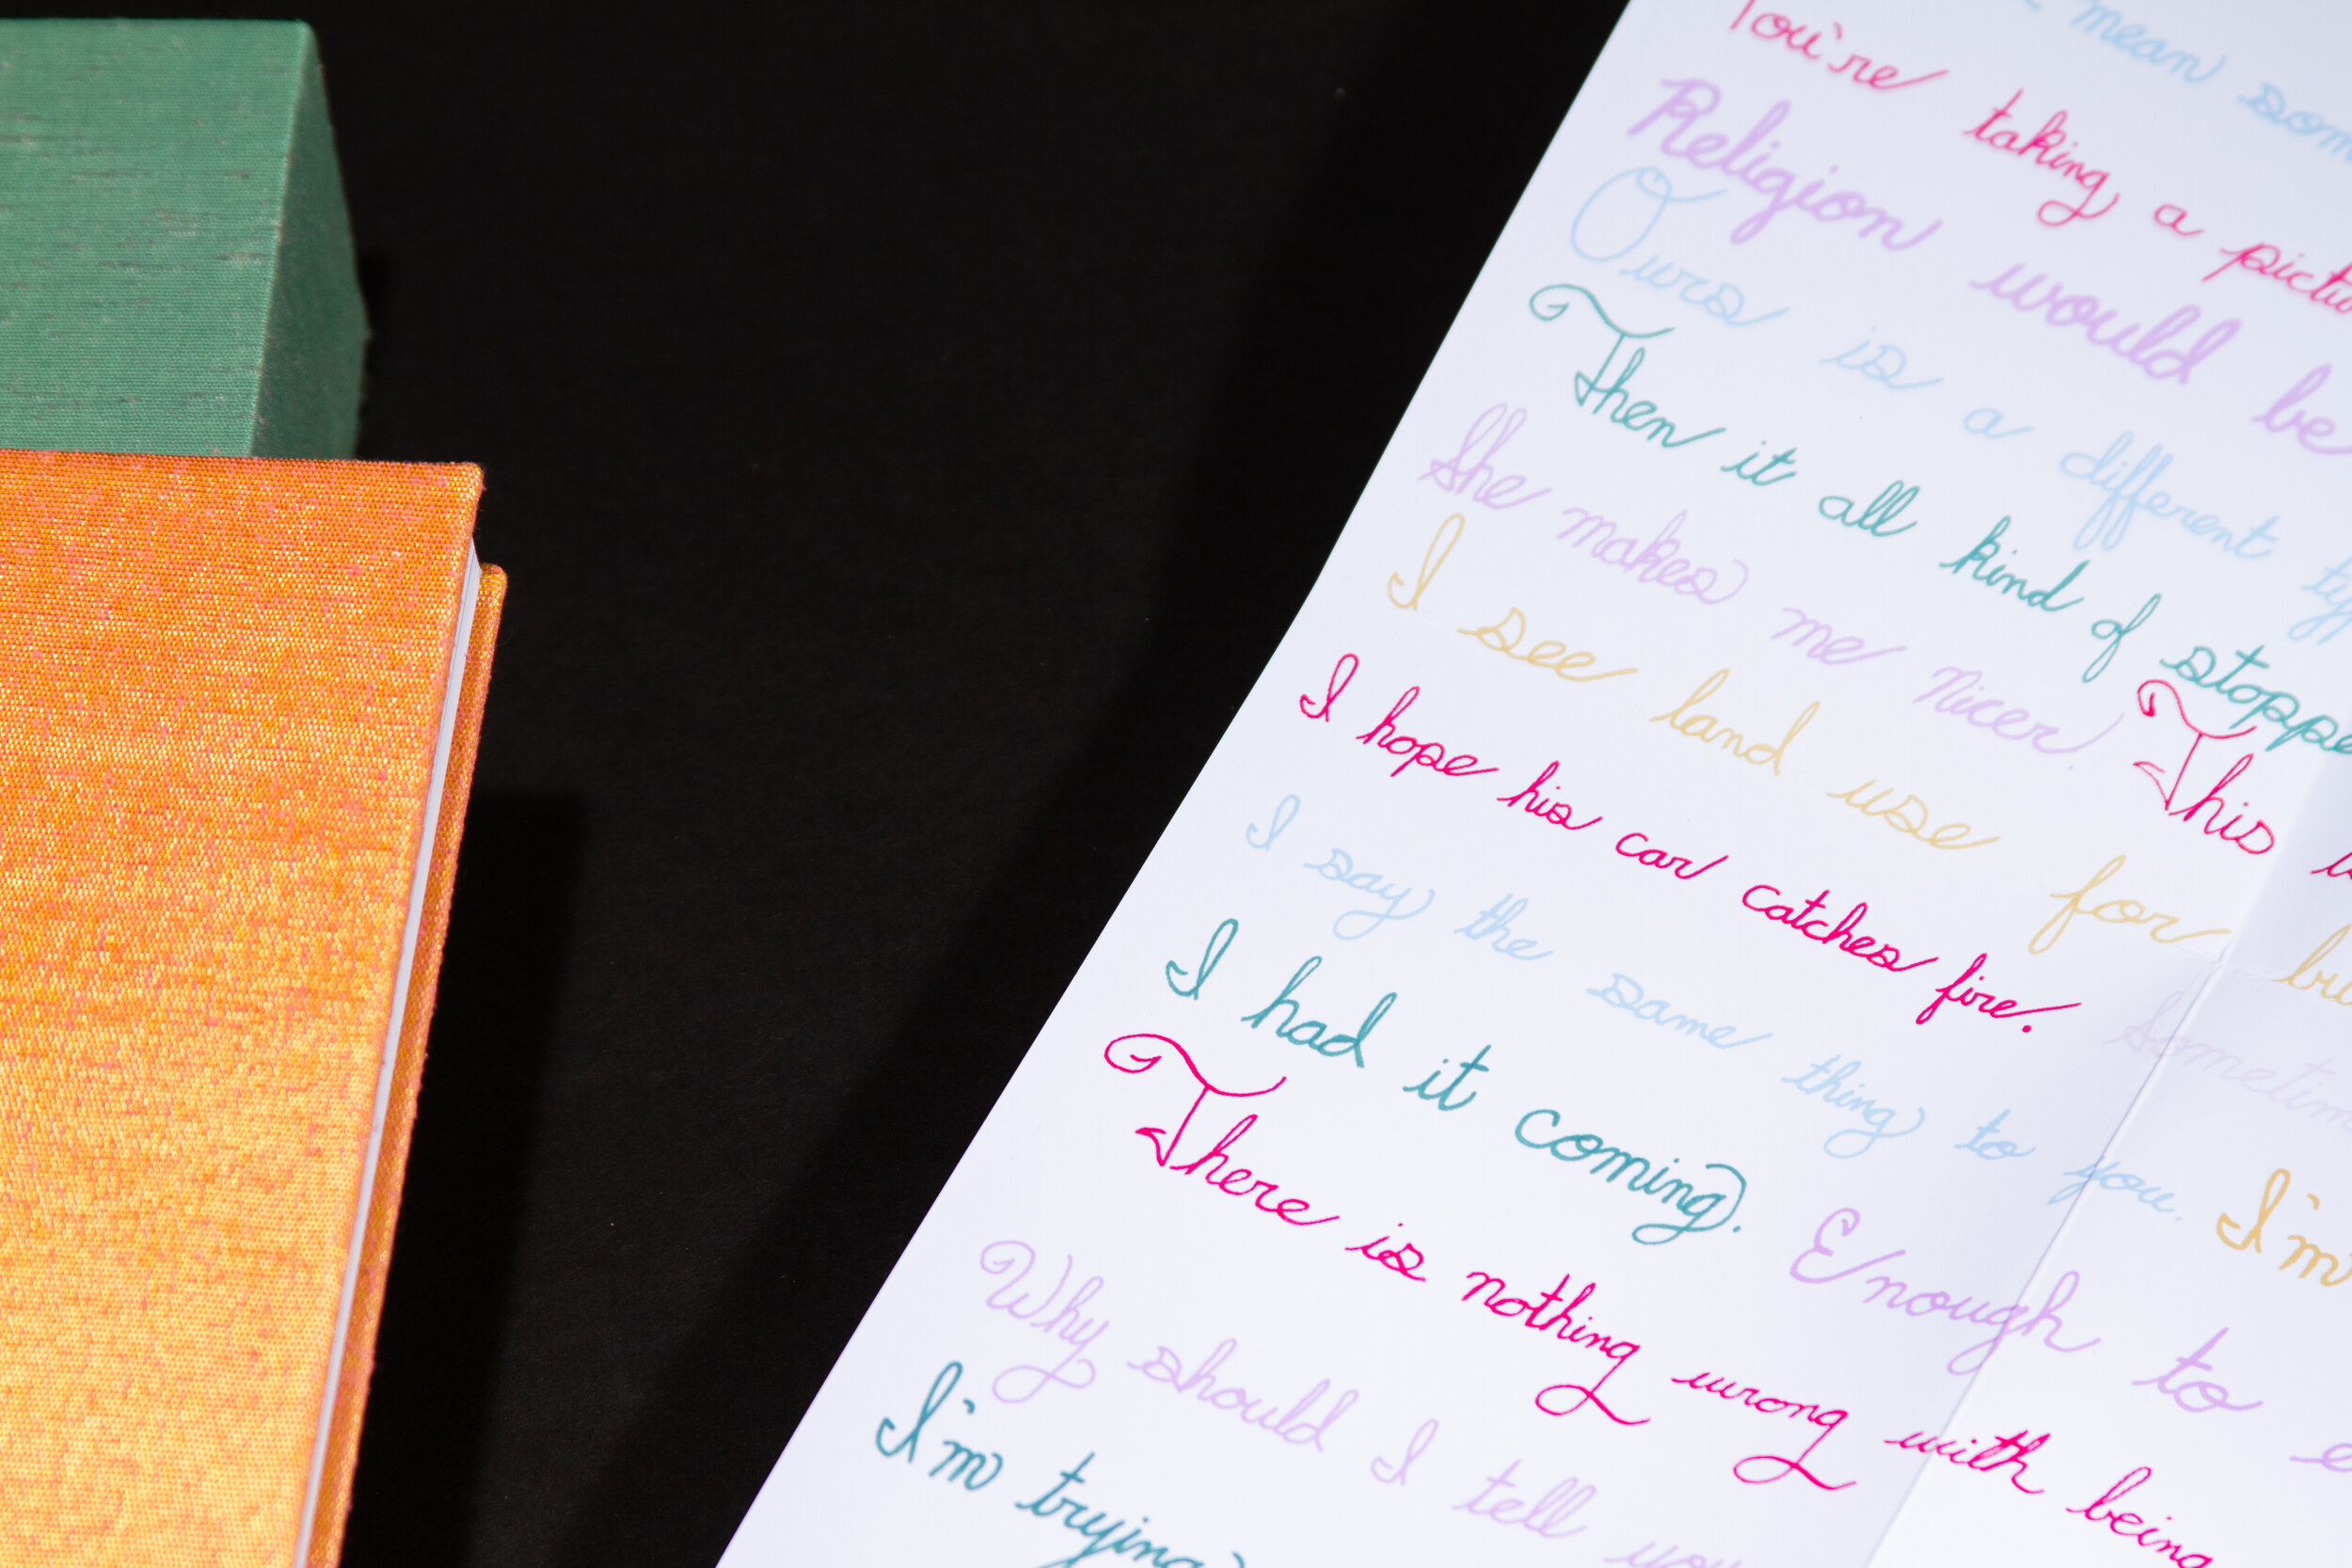 mean
You're taking a
Religion would be
Ours is a different
Then it all kind of
She makes me nicer! This
I see land use for
I hope his car catches fire.
I say the same thing to you. I'm
I had it coming. Enough to
There is nothing wrong with being
Why should I tell you
I'm trying